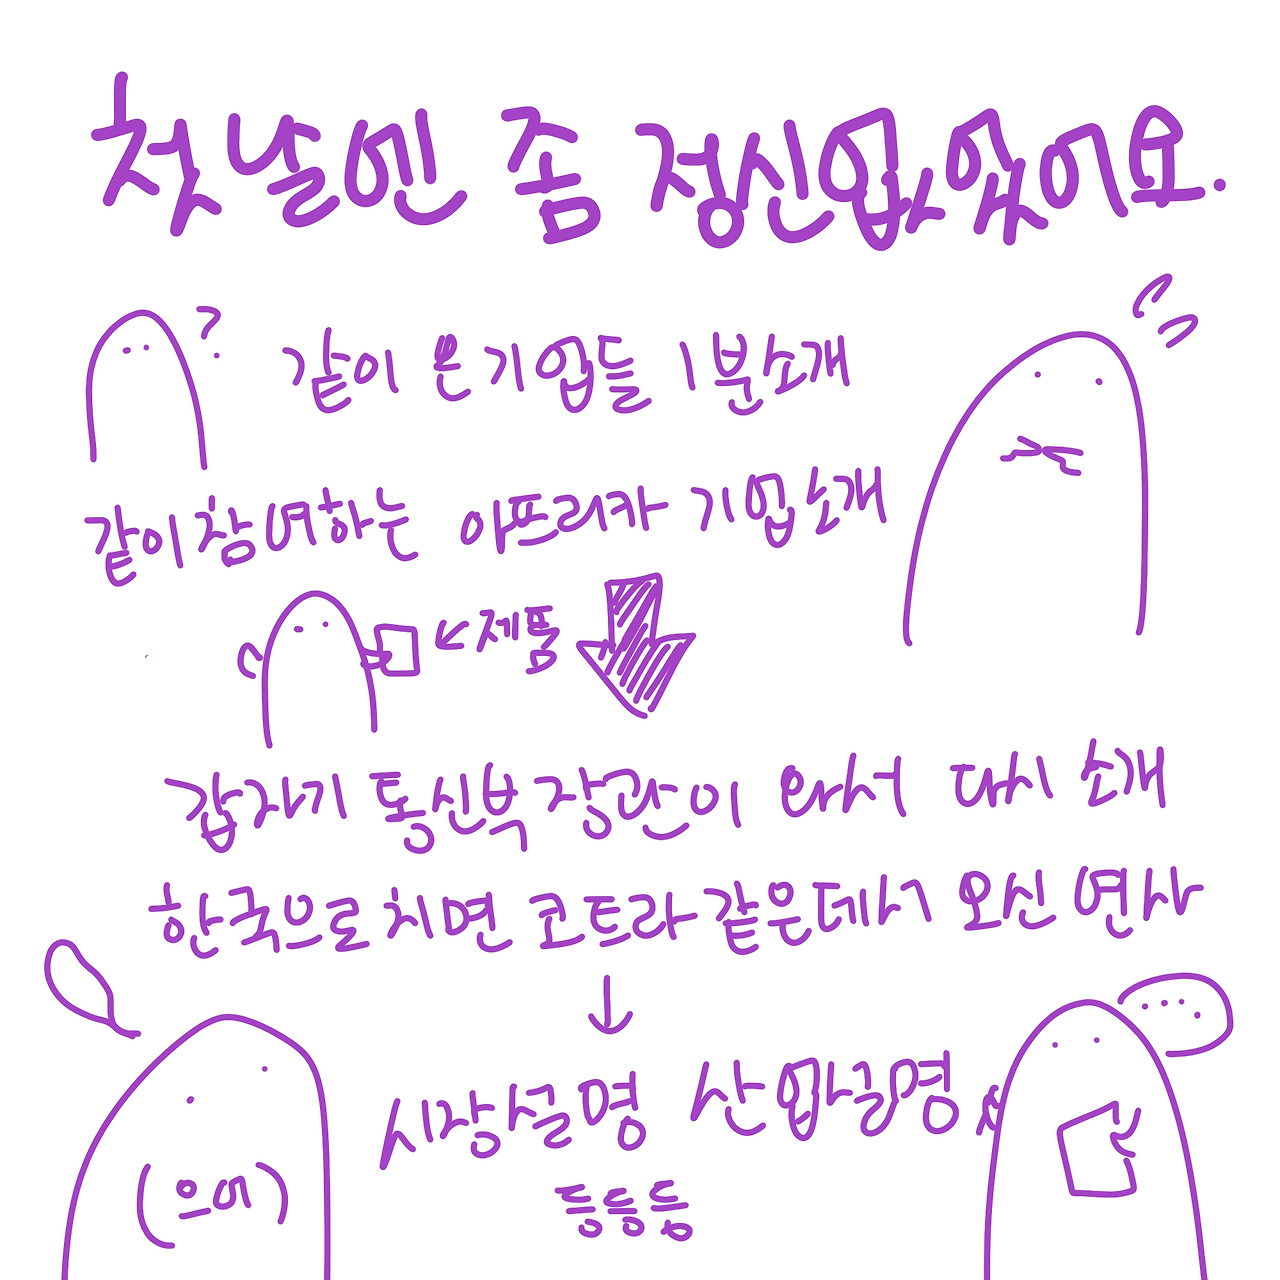 첫날엔 좀 정신없었어요.
?
같이 온 기업들 1분소개
같이 참여하는 아프리카 기업소개
← 제품
갑자기 통신부장관이 와서 다시 소개
한국으로 치면 코트라 같은데서 오신 연사
↓
시장설명 산업설명
등등등
(으어)
....